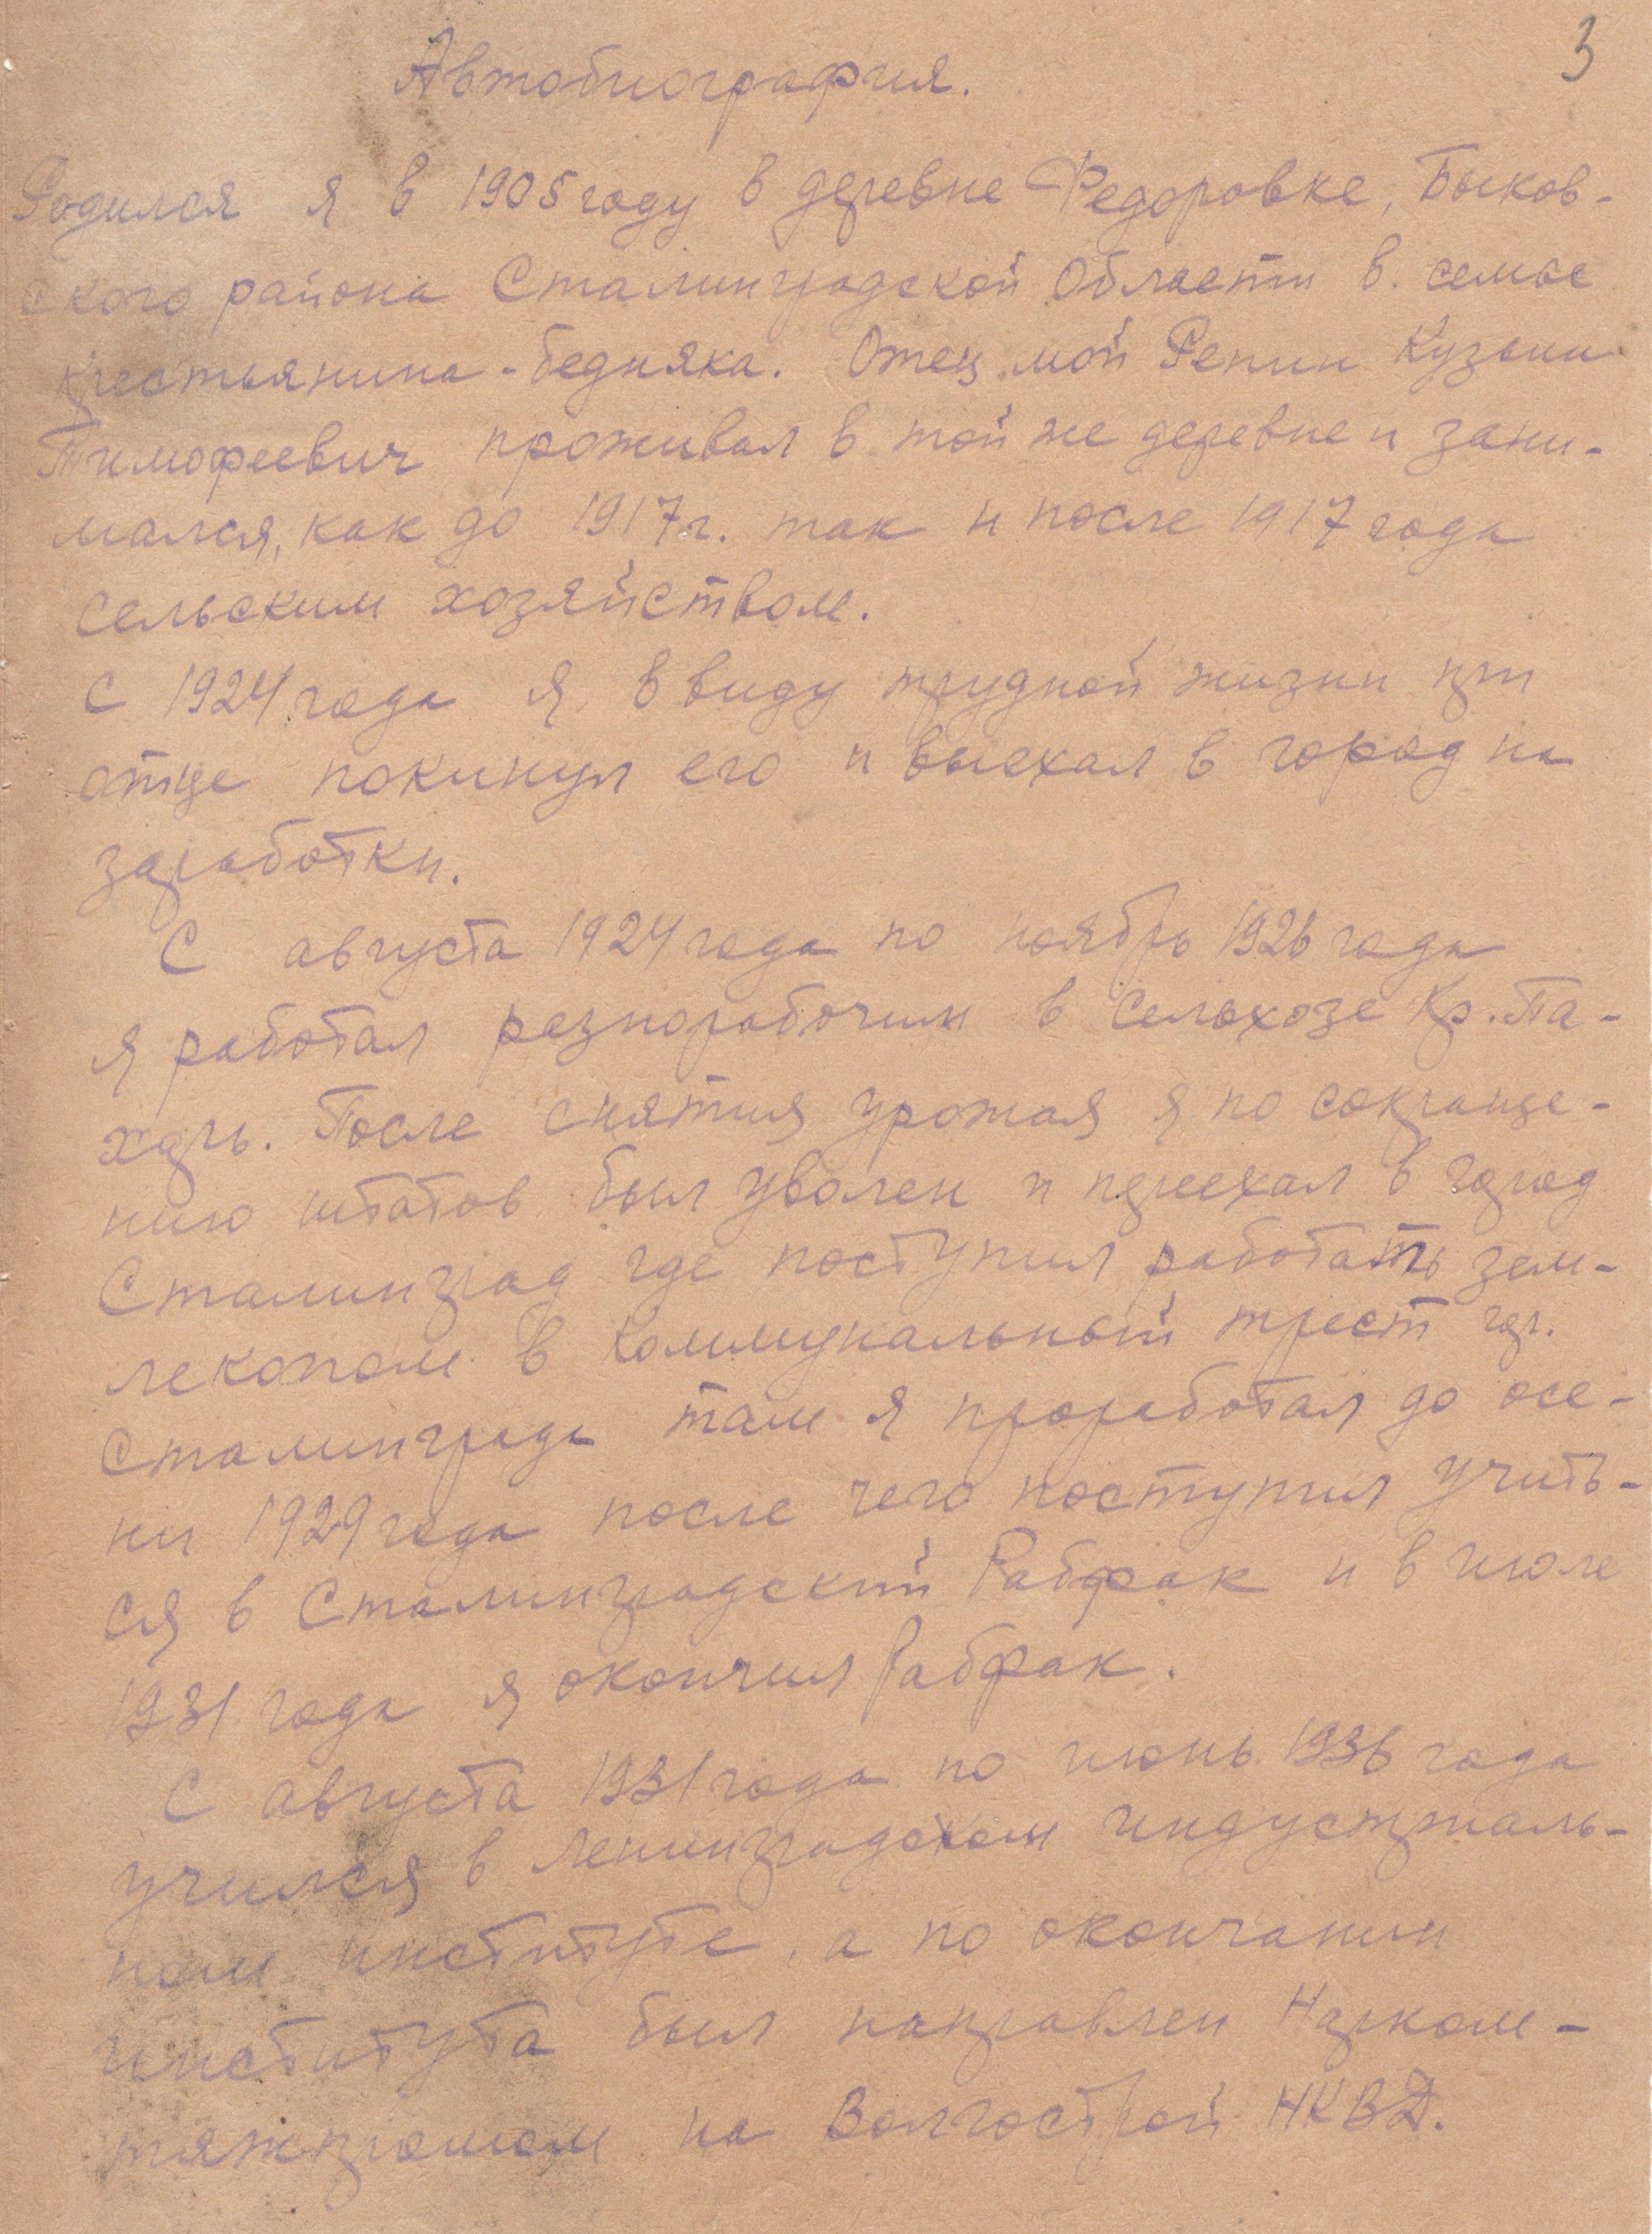 3
Автобиография.
Родился я в 1905 году в деревне Федоровке, Быков-
ского района Сталинградской Области в семье
крестьянина-бедняка. Отец мой Репин Кузьми
Тимофеевич проживал в той же деревне и зани-
мался, как до 1917 г. так и после 1917 года
сельским хозяйством.
С 1924 года я ввиду трудной жизни при
отце покинул его и выехал в город на
заработки.
С августа 1924 года по ноябрь 1926 года
я работал разнорабочим в сельхозе Кр. Па-
харь. После снятия урожая я по сокраще-
нию штатов был уволен и приехал в город
Сталинград где поступил работать зем-
лекопом в Коммунальный трест гор.
Сталинграда там я проработал до осе-
ни 1929 года после чего поступил учить-
ся в Сталинградский Рабфак и в июле
1931 года я окончил Рабфак.
С августа 1931 года по июнь 1936 года
учился в Ленинградском индустриаль-
ном институте, а по окончании
института был направлен Нарком-
тяжпромом на Волгострой НКВД.